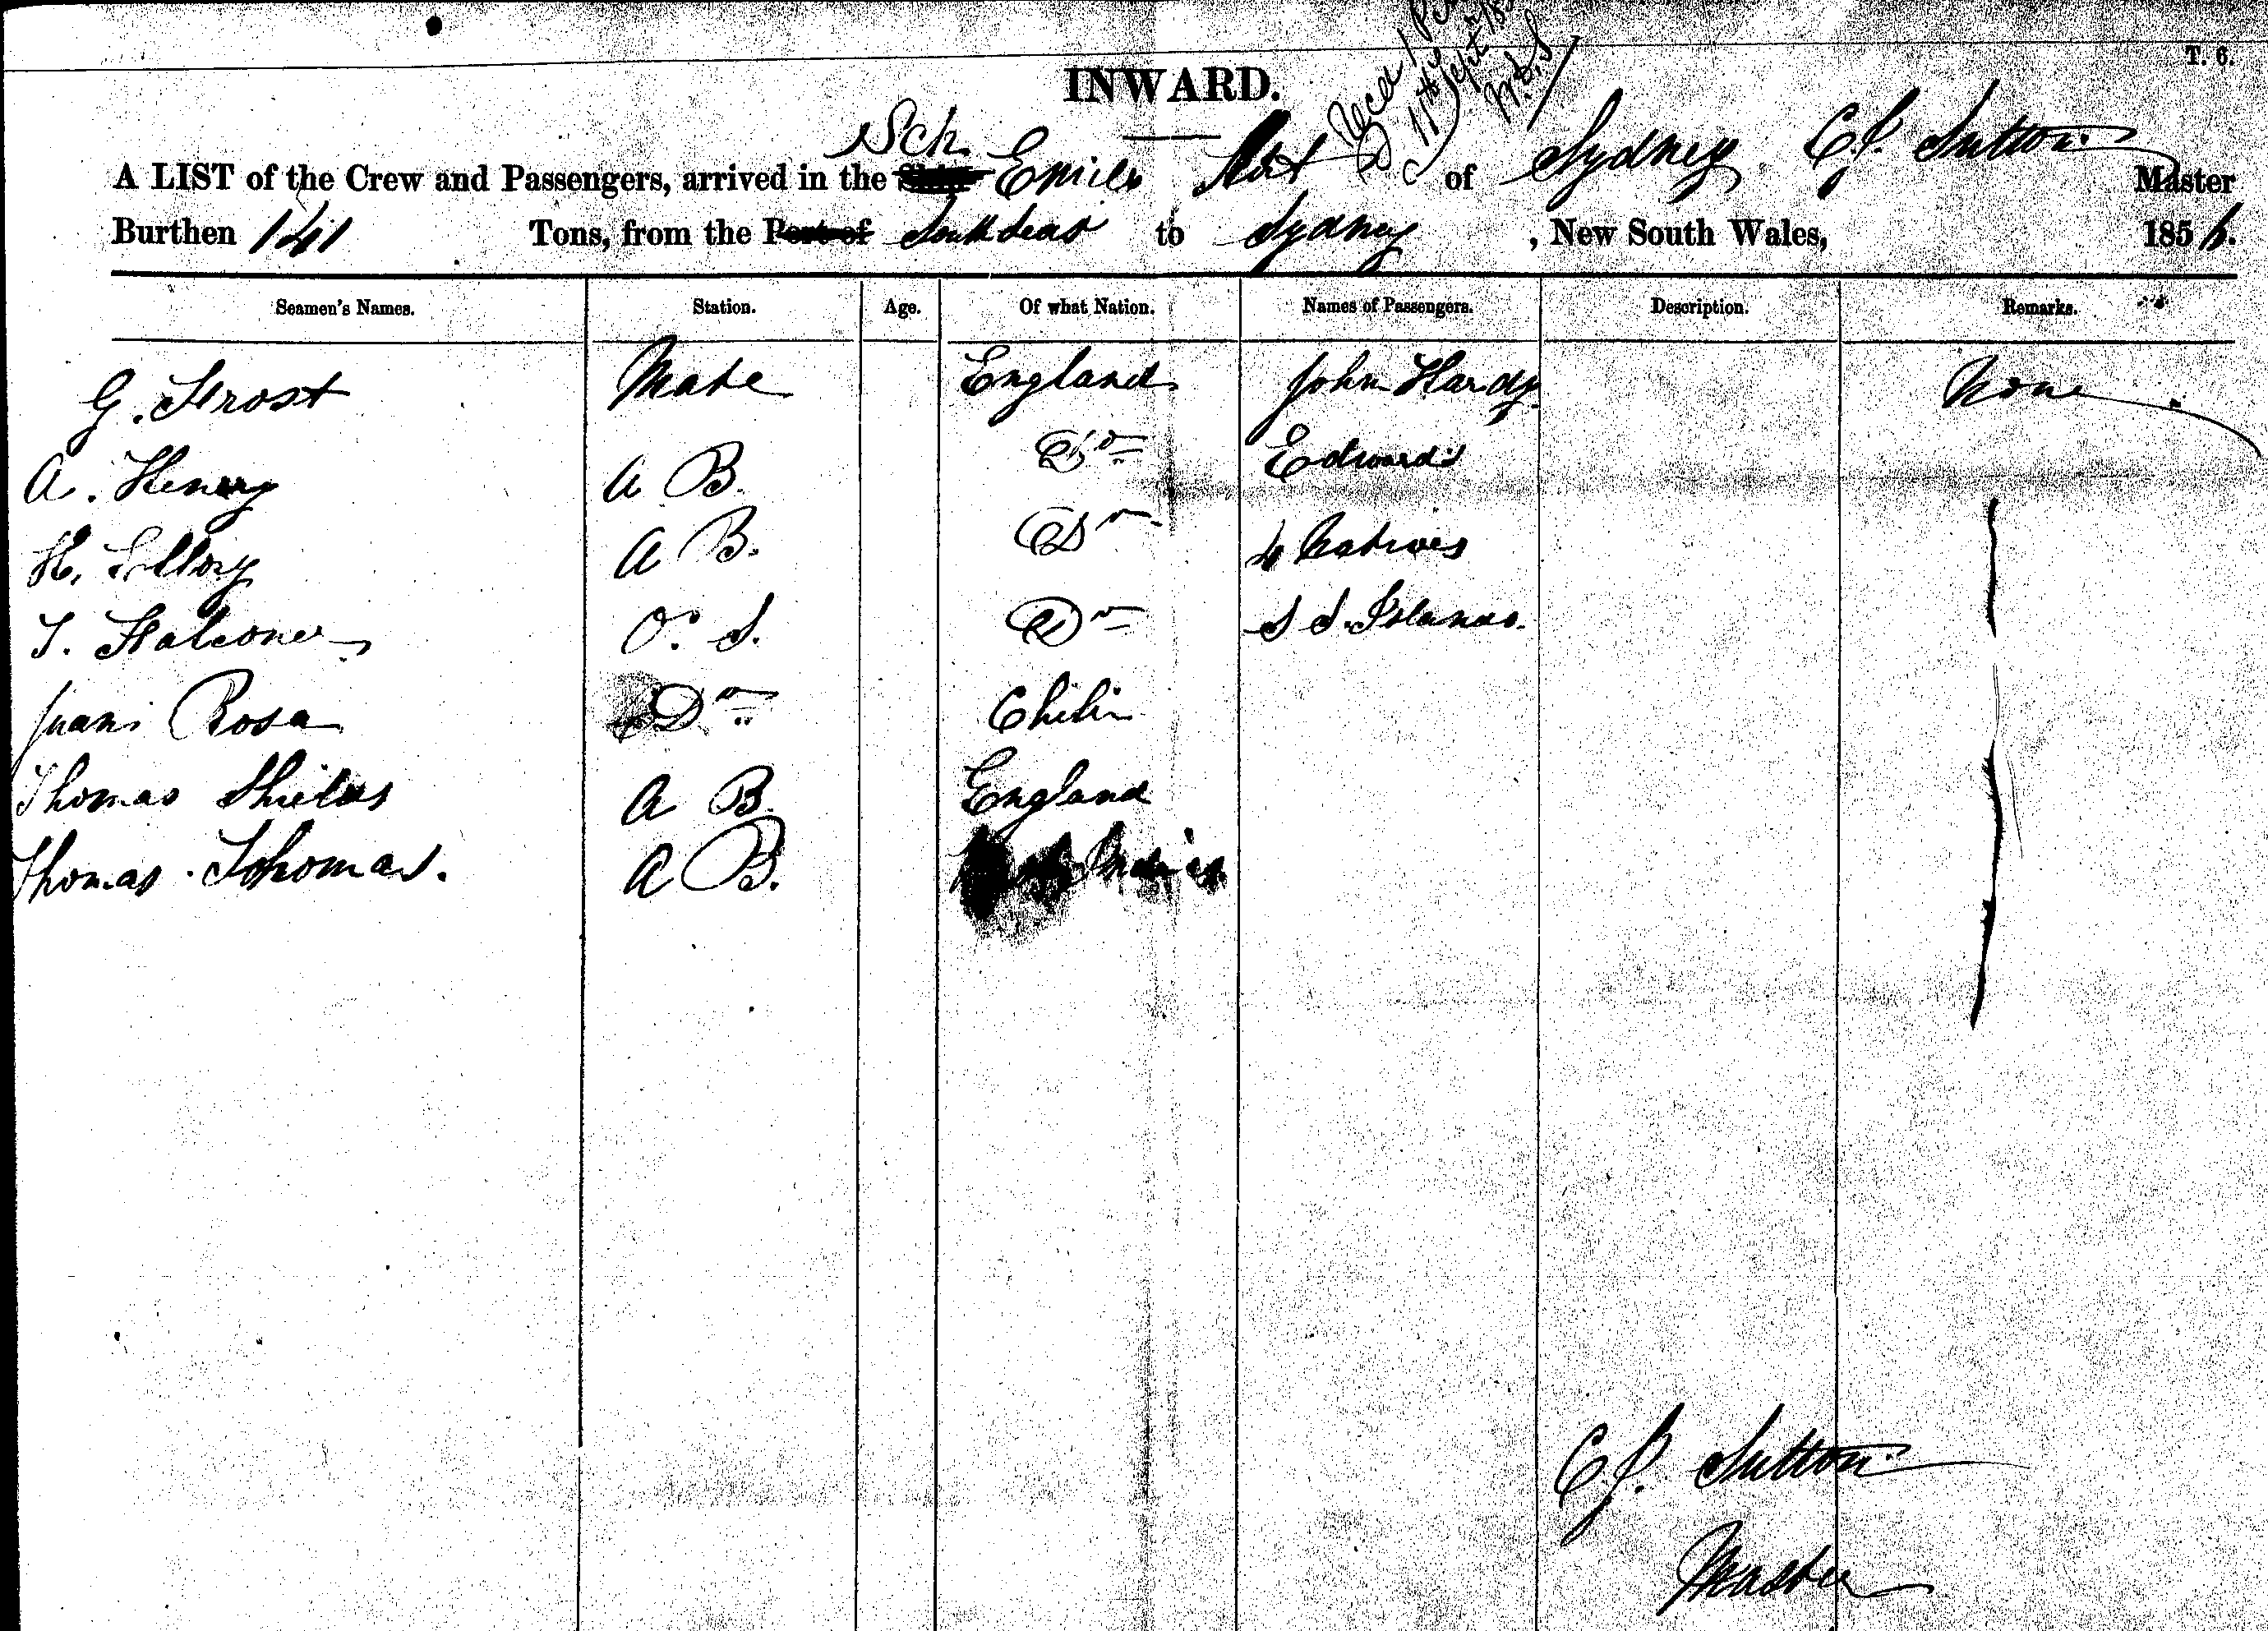 T. 6.
INWARD.
11th Sept
Sch.
A LIST of the Crew and Passengers, arrived in the Ship of Sydney C. J. Sutton Master
Burthen 141 Tons, from the Port of South Seas to Sydney, New South Wales, 1856.
Seamen's Names. Station. Age. Of what Nation. Names of Passengers. Description. Remarks.
G. Frost Mate England John Hardy None
A. Henry A B. Do Edwards
H. A B. Do 4 Natives
T. Falconer O. S. Do S S. Islands.
Juan Rosa Do Chili
Thomas Shields A B. England
Thomas Thomas. A B. Indies
C J. Sutton
Master